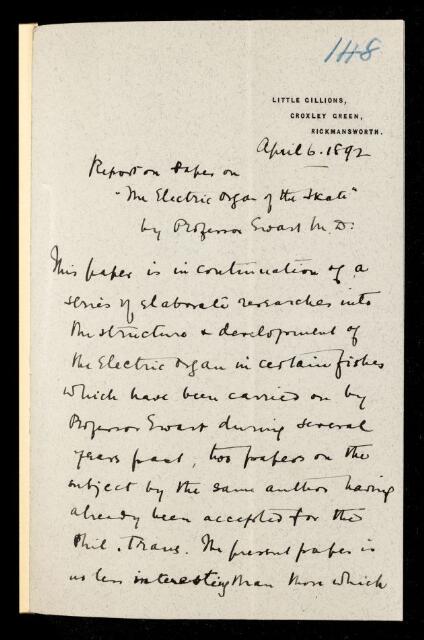 148
LITTLE GILLIONS,
CROXLEY GREEN,
RICKMANSWORTH.
April 6. 1892
Report on paper on
"The Electric Organ of the Skate"
by Professor Ewart M.D.
This paper is in continuation of a
series of elaborate researches into
the structure & development of
the Electric Organ in certain fishes
which have been carried on by
Professor Ewart during several
years past, two papers on the
subject by the same author having
already been accepted for the
Phil. Trans. The present paper is
no less interesting than those which